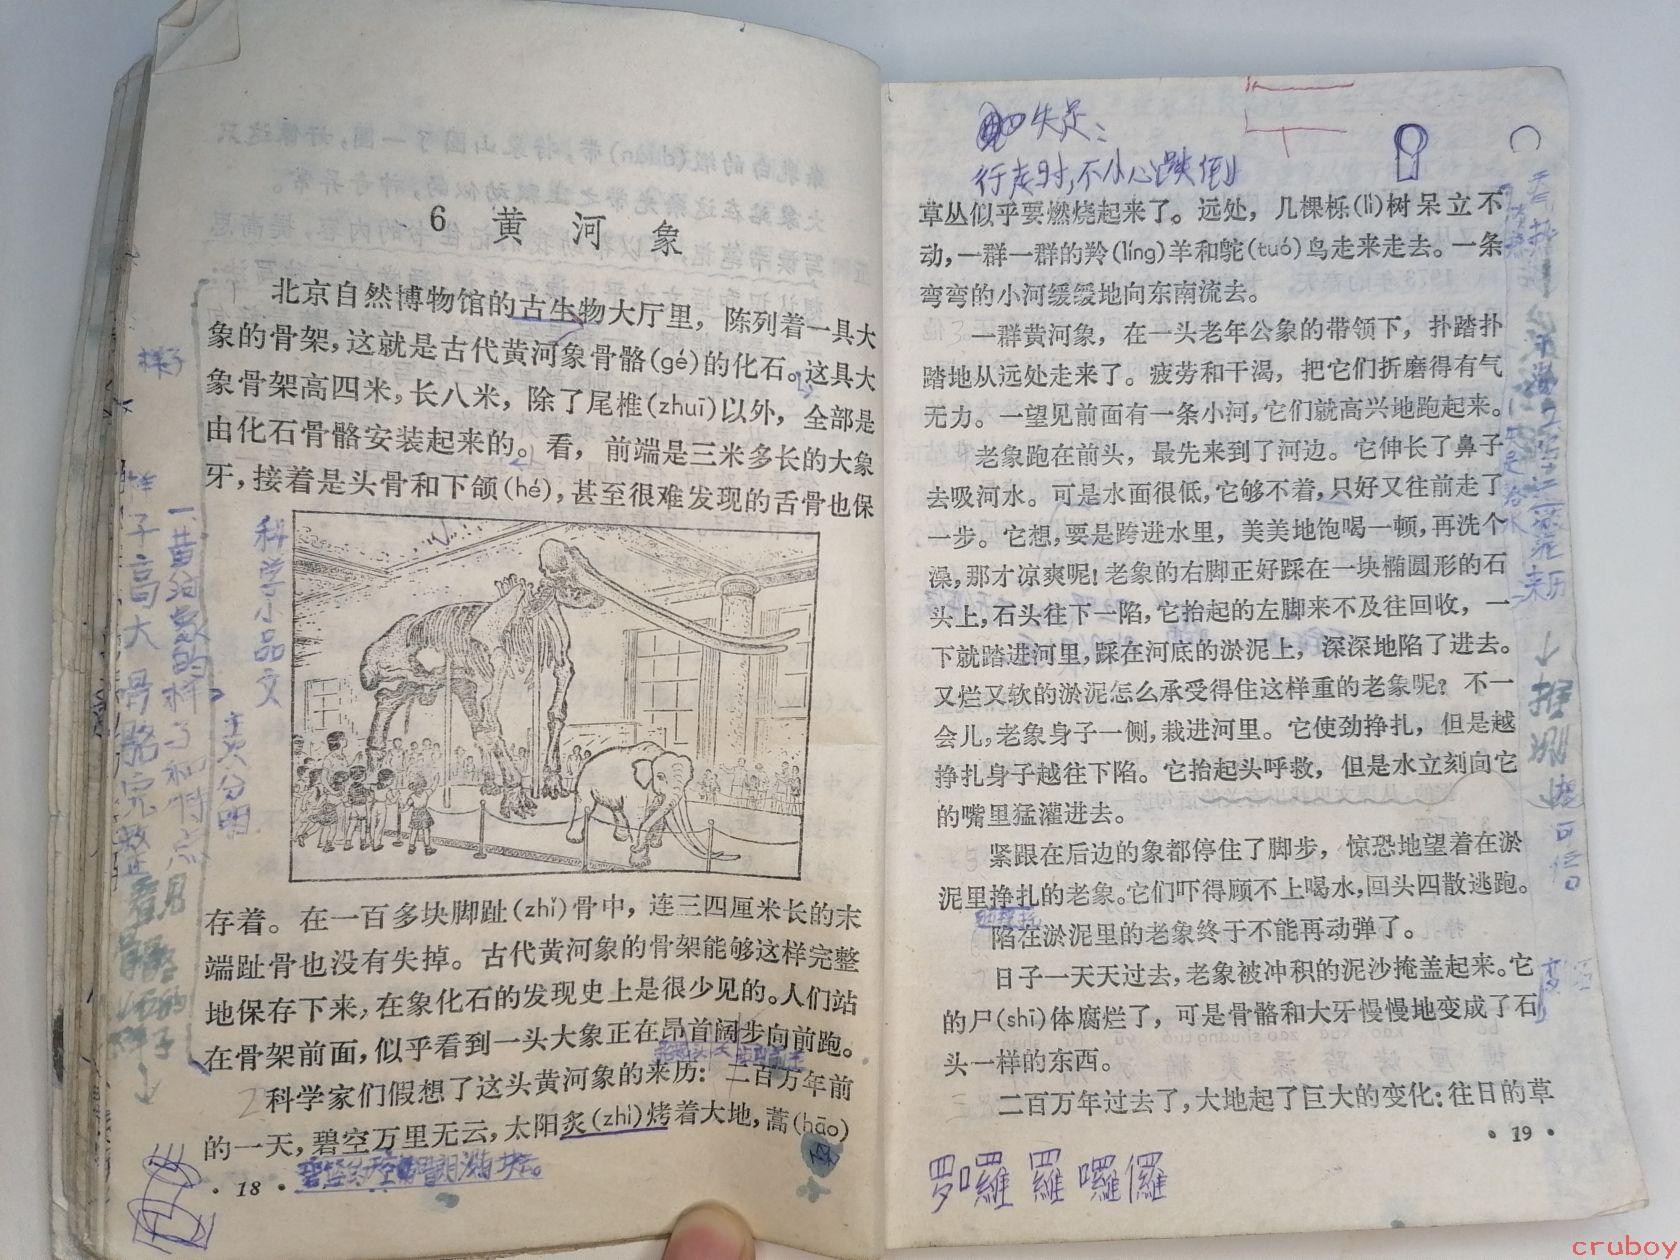 6 黄河象
北京自然博物馆的古生物大厅里，陈列着一具大
象的骨架，这就是古代黄河象骨骼(gé)的化石。这具大
象骨架高四米，长八米，除了尾椎(zhuī)以外，全部是
由化石骨骼安装起来的。看，前端是三米多长的大象
牙，接着是头骨和下颌(hé)，甚至很难发现的舌骨也保
存着。在一百多块脚趾(zhǐ)骨中，连三四厘米长的末
端趾骨也没有失掉。古代黄河象的骨架能够这样完整
地保存下来，在象化石的发现史上是很少见的。人们站
在骨架前面，似乎看到一头大象正在昂首阔步向前跑。
科学家们假想了这头黄河象的来历：二百万年前
的一天，碧空万里无云，太阳炙(zhì)烤着大地，蒿(hāo)
· 18 ·
科学小品文
主次分明
一黄河象的样子和特点
样子
子高大骨骼完整
失足：
行走时，不小心跌倒
草丛似乎要燃烧起来了。远处，几棵栎(lì)树呆立不
动，一群一群的羚(líng)羊和鸵(tuó)鸟走来走去。一条
弯弯的小河缓缓地向东南流去。
一群黄河象，在一头老年公象的带领下，扑踏扑
踏地从远处走来了。疲劳和干渴，把它们折磨得有气
无力。一望见前面有一条小河，它们就高兴地跑起来。
老象跑在前头，最先来到了河边。它伸长了鼻子
去吸河水。可是水面很低，它够不着，只好又往前走了
一步。它想，要是跨进水里，美美地饱喝一顿，再洗个
澡，那才凉爽呢！老象的右脚正好踩在一块椭圆形的石
头上，石头往下一陷，它抬起的左脚来不及往回收，一
下就踏进河里，踩在河底的淤泥上，深深地陷了进去。
又烂又软的淤泥怎么承受得住这样重的老象呢？不一
会儿，老象身子一侧，栽进河里。它使劲挣扎，但是越
挣扎身子越往下陷。它抬起头呼救，但是水立刻向它
的嘴里猛灌进去。
紧跟在后边的象都停住了脚步，惊恐地望着在淤
泥里挣扎的老象。它们吓得顾不上喝水，回头四散逃跑。
陷在淤泥里的老象终于不能再动弹了。
日子一天天过去，老象被冲积的泥沙掩盖起来。它
的尸(shī)体腐烂了，可是骨骼和大牙慢慢地变成了石
头一样的东西。
二百万年过去了，大地起了巨大的变化：往日的草
· 19 ·
罗囉羅囉儸
来历
可信
cruboy